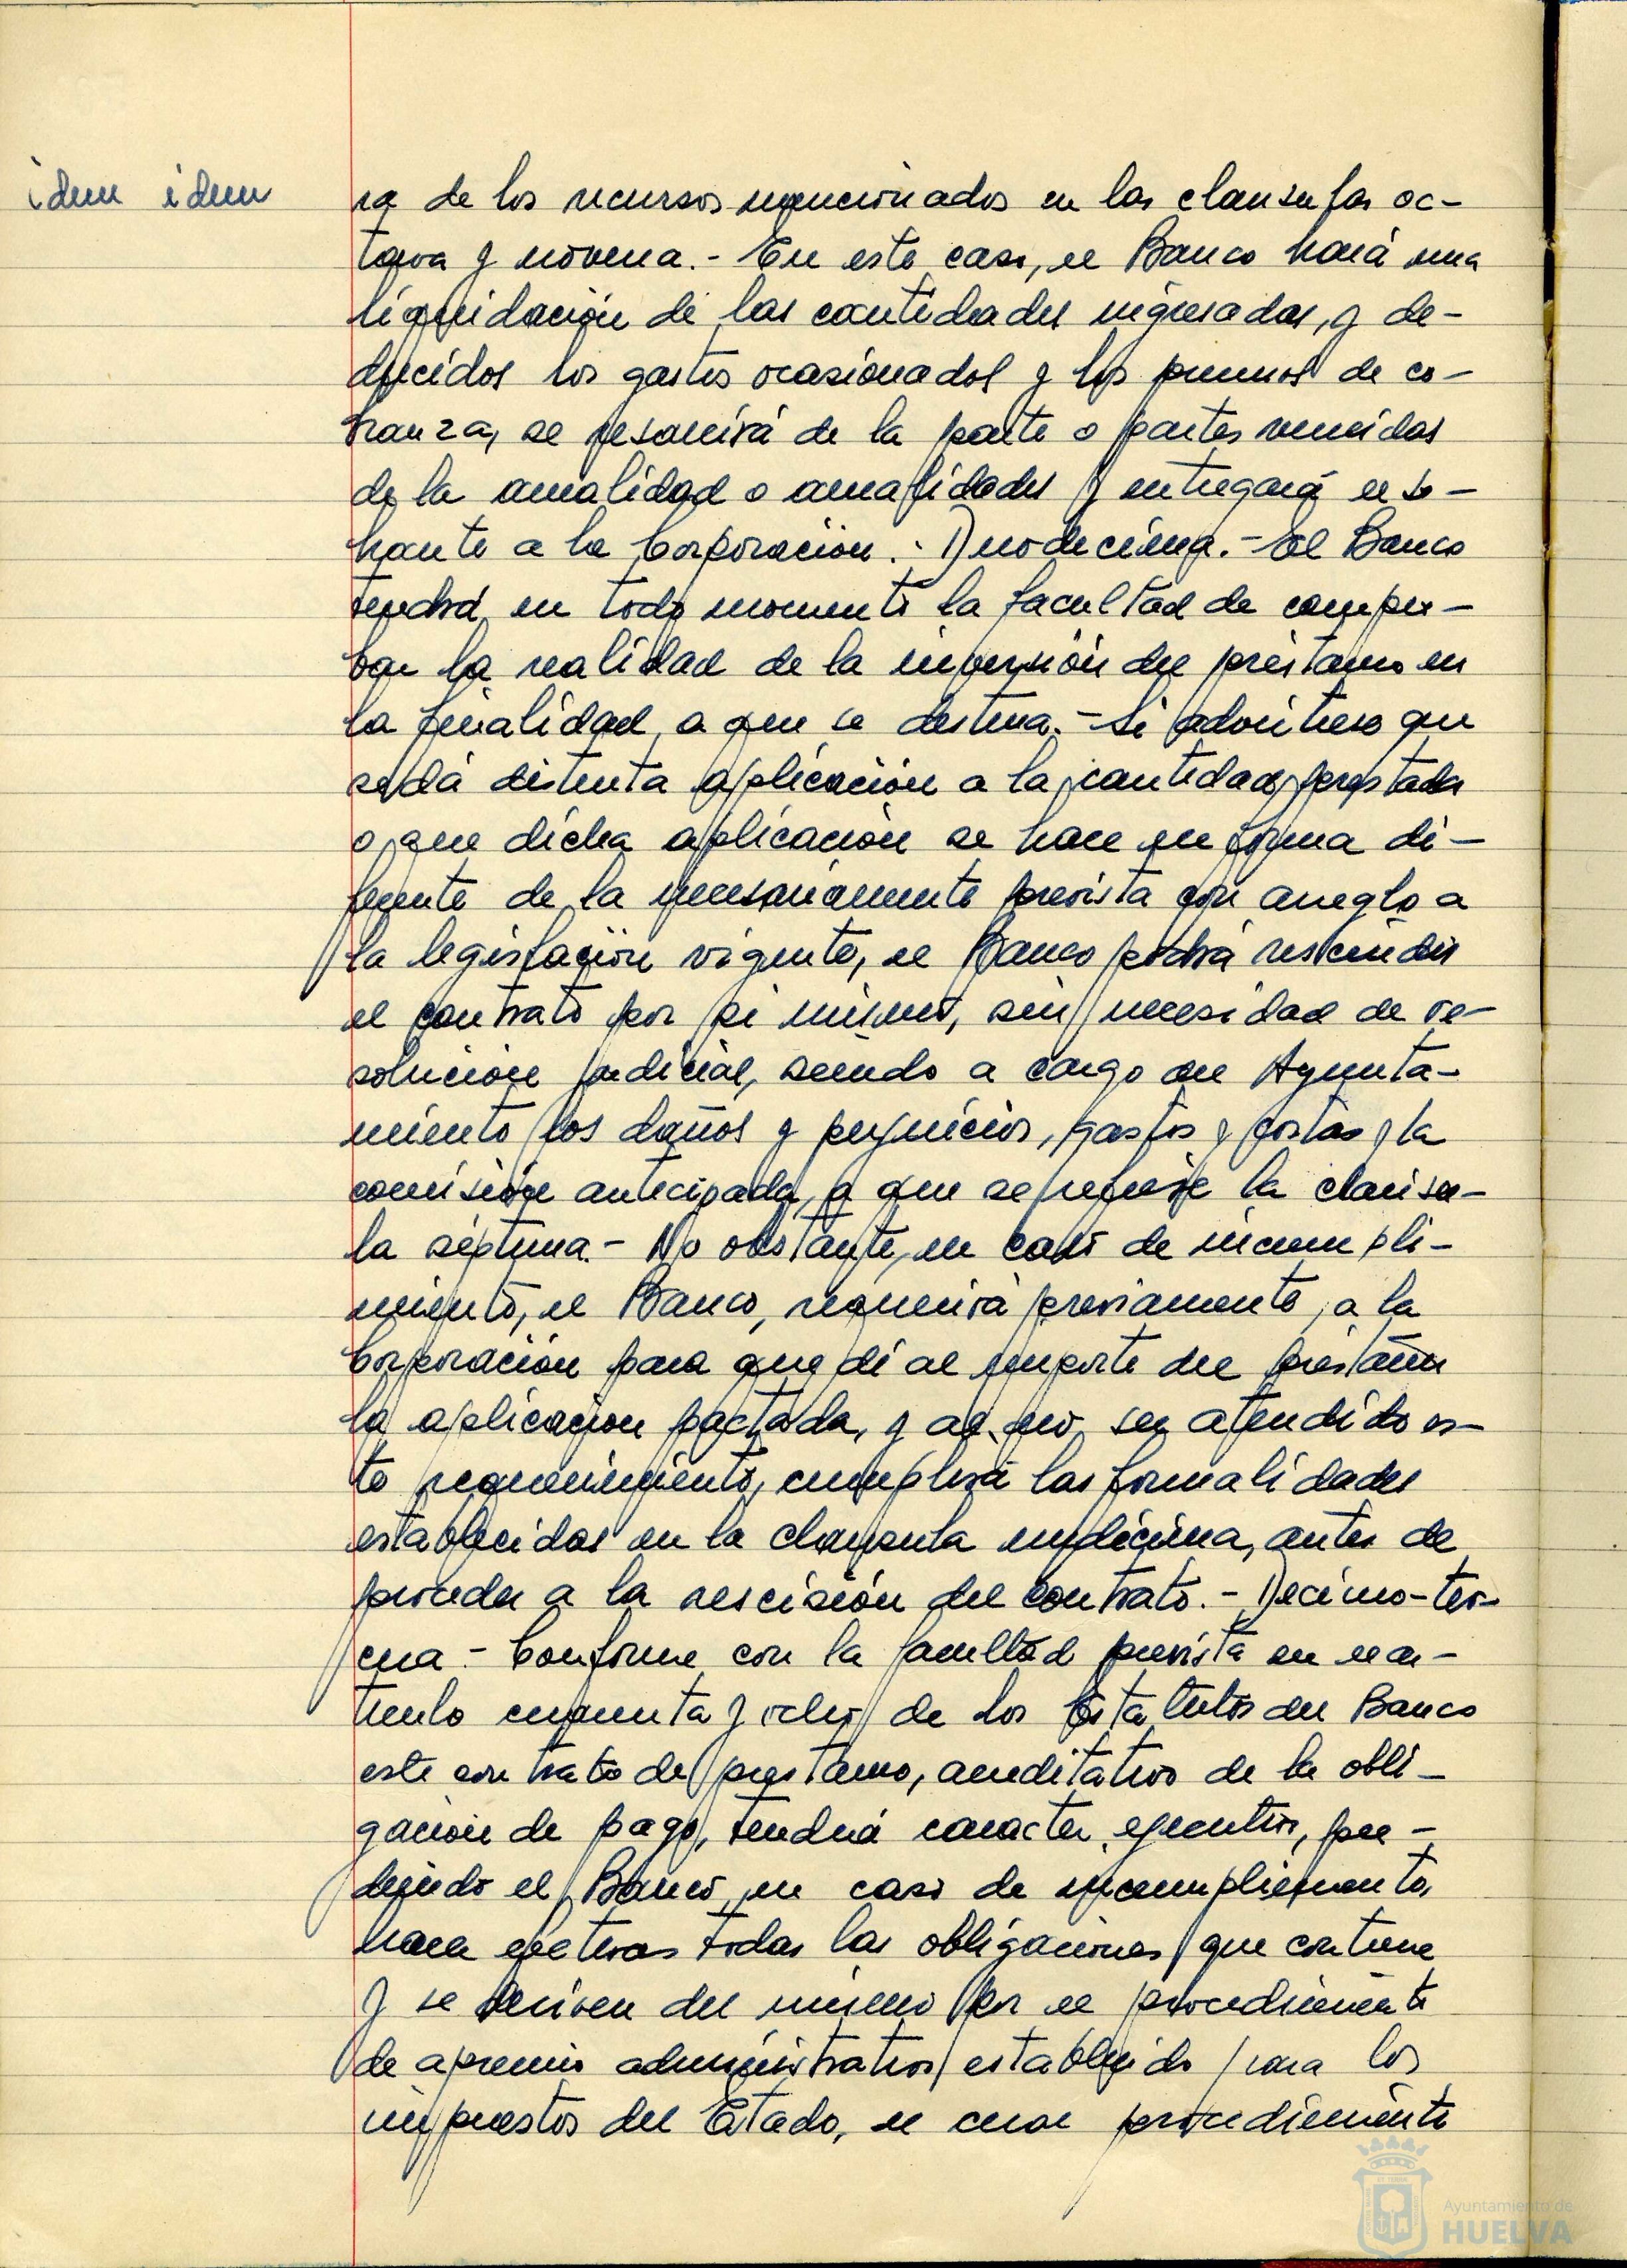 idem idem
ra de los recursos mencionados en las clausulas oc-
tava y novena.- En este caso, el Banco hará una
liquidación de las cantidades ingresadas, y de-
ducidos los gastos ocasionados y los premios de co-
branza, se resarcirá de la parte o partes vencidas
de la anualidad o anualidades y entregará el so-
brante a la Corporación.- Duodecima.- El Banco
tendrá en todo momento la facultad de compro-
bar la realidad de la inversión del préstamo en
la finalidad a que se destina.- Si advirtiese que
se dá distinta aplicación a la cantidad prestada
o que dicha aplicación se hace en forma di-
ferente de la necesariamente prevista con arreglo a
la legislación vigente, el Banco podrá rescindir
el contrato por si mismo, sin necesidad de re-
solución judicial, siendo a cargo del Ayunta-
miento los daños y perjuicios, gastos y costas y la
comisión anticipada a que se refiere la clausu-
la séptima.- No obstante, en caso de incumpli-
miento, el Banco, requerirá previamente, a la
Corporación para que dé al importe del préstamo
la aplicación pactada, y al no ser atendido es-
te requerimiento, cumplirá las formalidades
establecidas en la clausula undécima, antes de
proceder a la rescisión del contrato.- Decimo-ter-
cera - Conforme con la facultad prevista en el ar-
ticulo cincuenta y ocho de los Estatutos del Banco
este contrato de prestamo, acreditativo de la obli-
gación de pago, tendrá caracter ejecutivo, pu-
diendo el Banco, en caso de incumplimiento,
hacer efectivas todas las obligaciones que contiene
y se deriven del mismo por el procedimiento
de apremio administrativo establecido para los
impuestos del Estado, el cual procedimiento
Ayuntamiento de
HUELVA